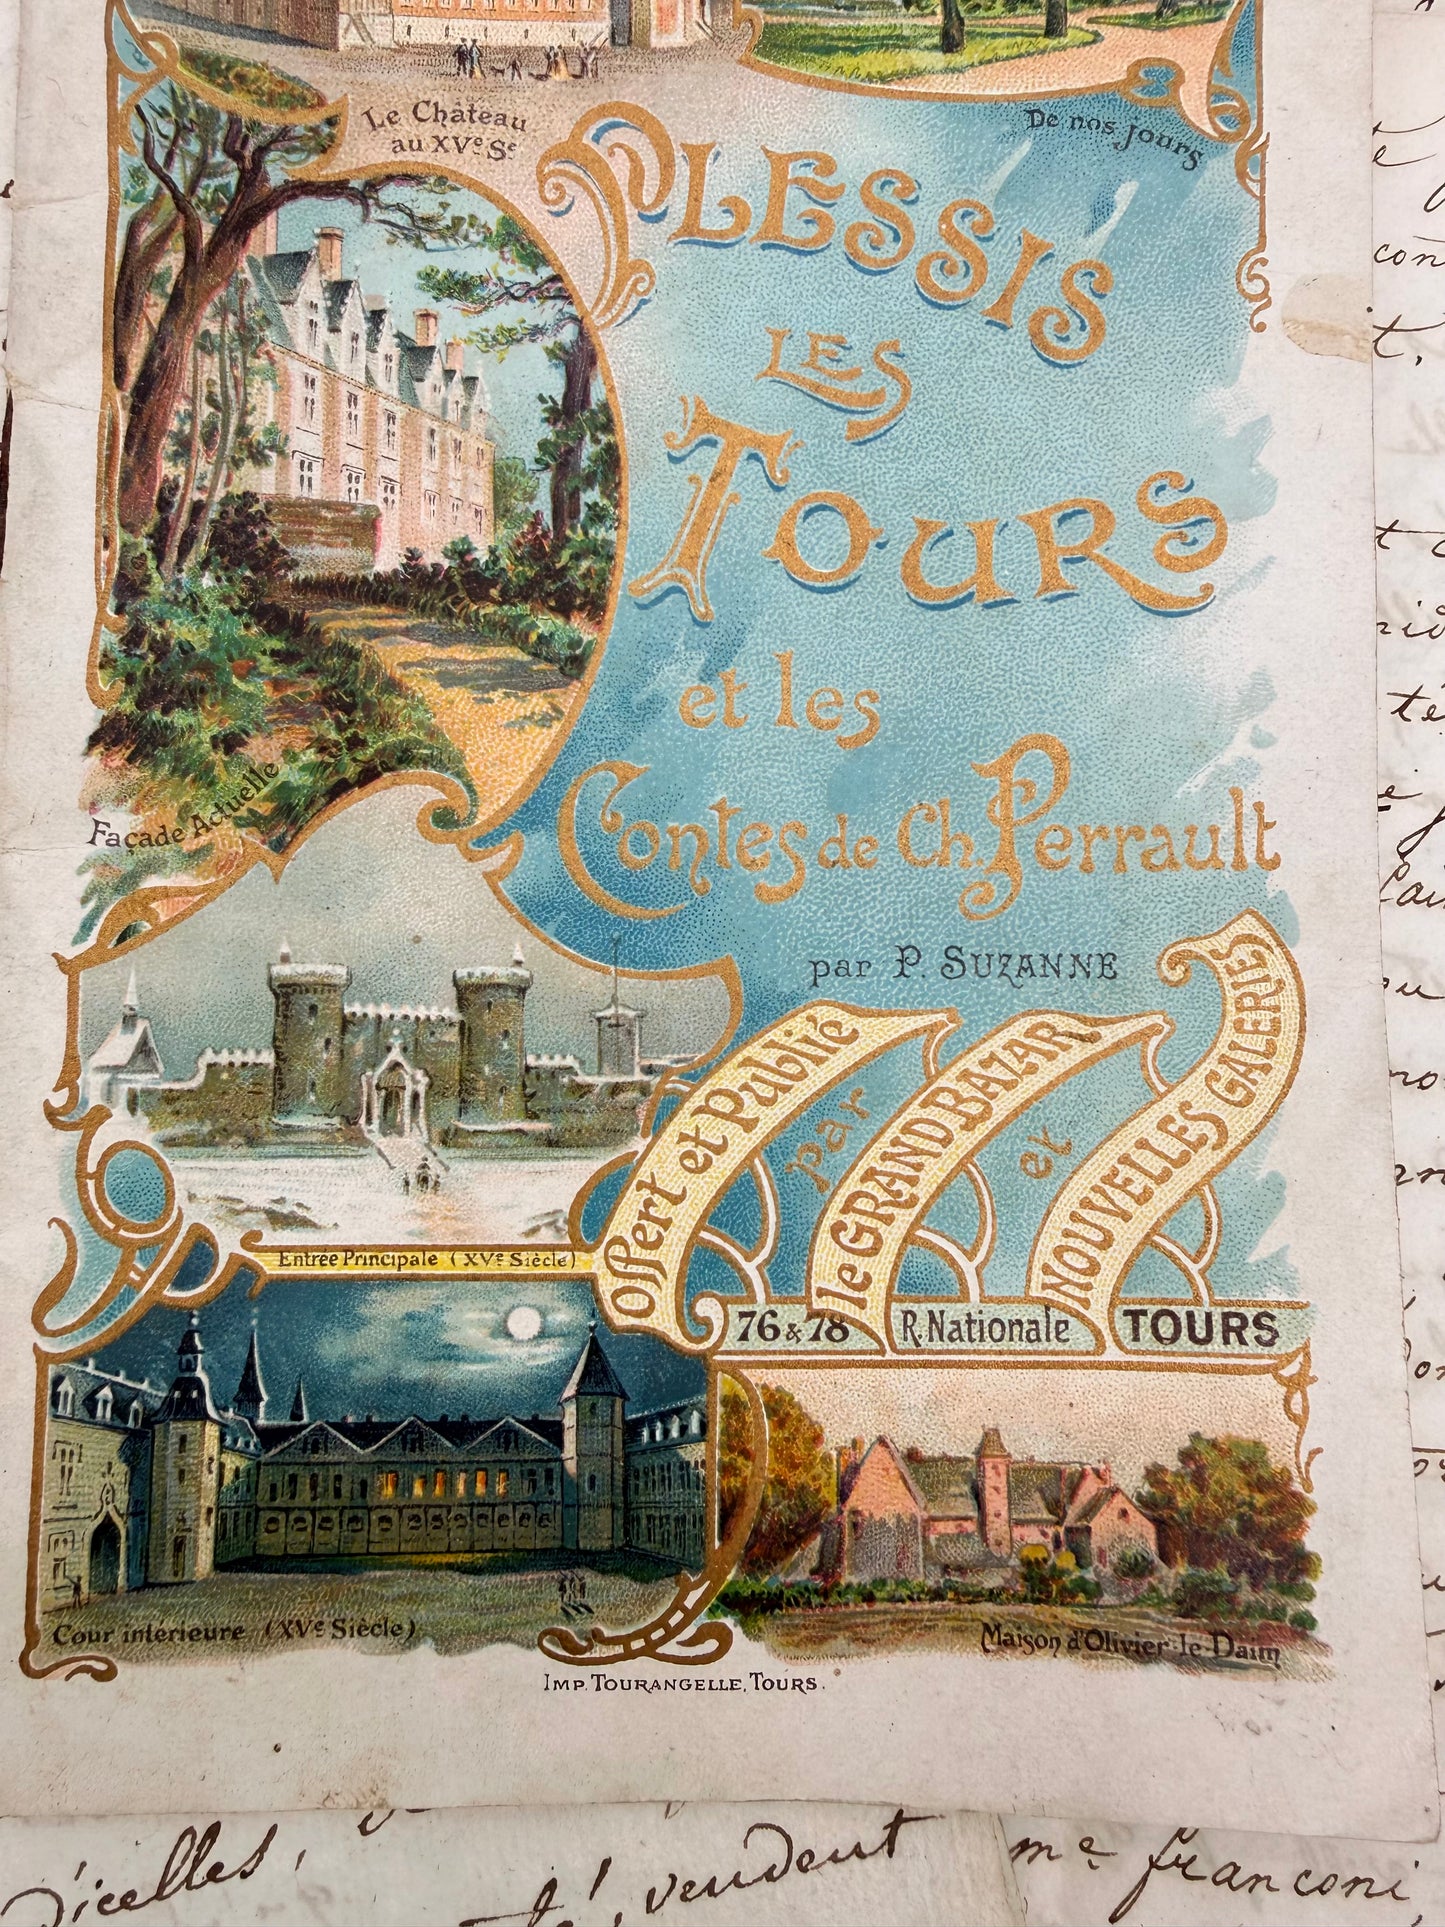 Le Château
au XVe Se
De nos jours
PLESSIS
LES
TOURS
et les
Contes de Ch. Perrault
par P. SUZANNE
Façade Actuelle
Offert et Publié
par
le GRAND BAZAR
et
NOUVELLES GALERIES
76 & 78 R. Nationale TOURS
Entrée Principale (XVe Siècle)
Cour intérieure (XVe Siècle)
Maison d'Olivier-le-Daim
IMP. TOURANGELLE, TOURS.
vendent me franconi